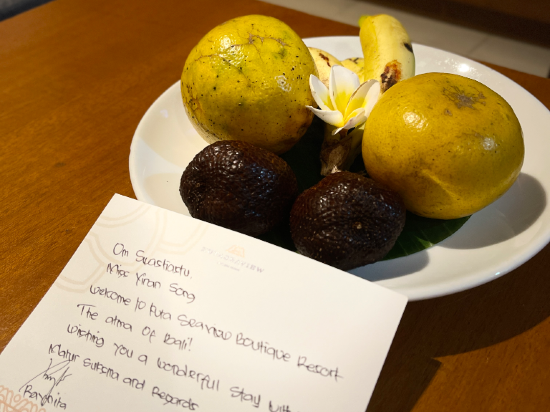 Om Swastiastu,
Miss Yiran Song
Welcome to Kuta Seaview Boutique Resort
The alma of Bali!
Wishing you a wonderful stay with
Matur Suksma and Regards